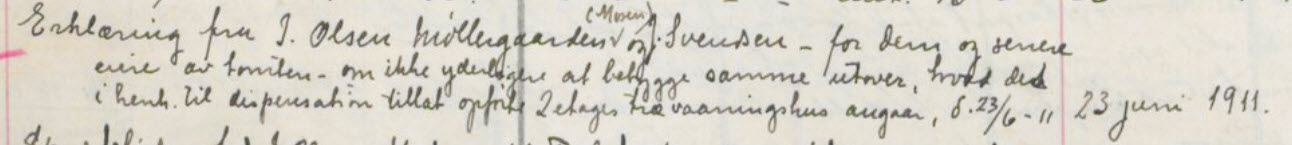 (Mosen)
Erklæring fra J. Olsen Møllergaarden og J. Svendsen – for dem og senere
eiere av tomten – om ikke yderligere at bebygge samme utover, hvad det
i henh. til dispensation tillat opførte 2 etages træ vaaningshus angaar, d. 23/6 - 11 23 juni 1911.